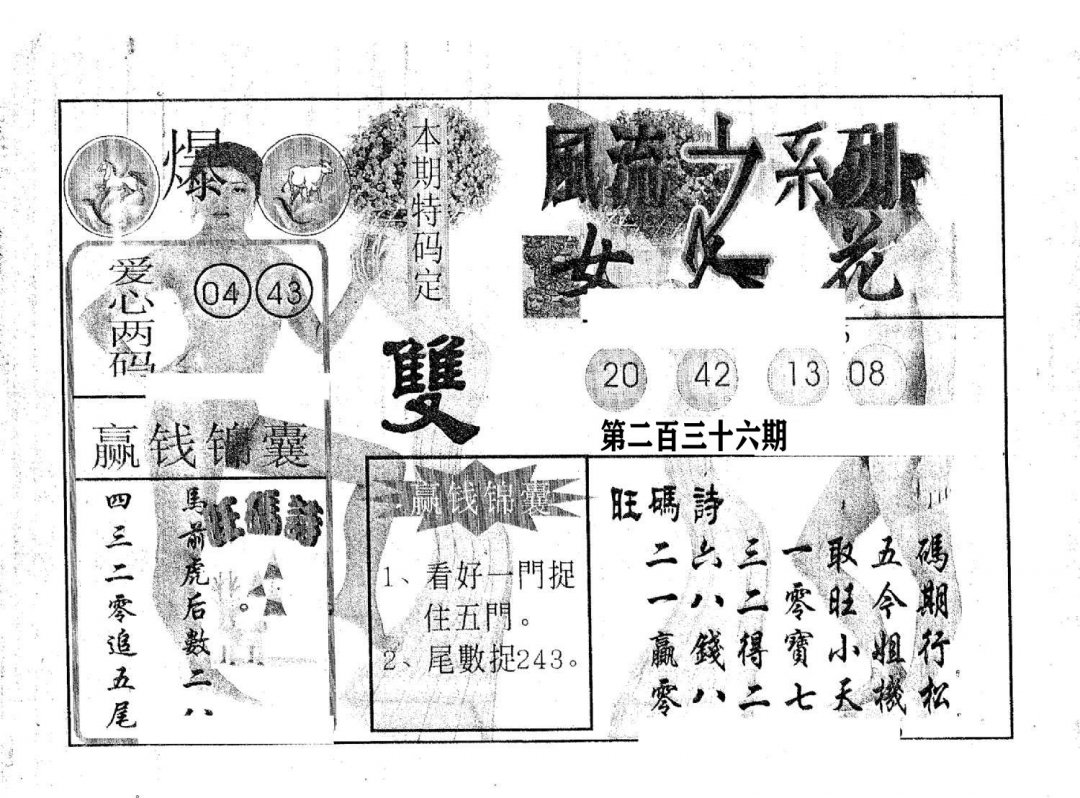 爆
爱心两码
04 43
本期特码定
雙
風流之系列
女人花
20 42 13 08
第二百三十六期
赢钱锦囊
旺碼詩
馬前虎后數二八
四三二零追五尾
赢钱锦囊
1、看好一門捉
住五門。
2、尾數捉243。
旺碼詩
二六三一取五碼
一八二零旺今期
贏錢得寶小姐行
零八二七天機松